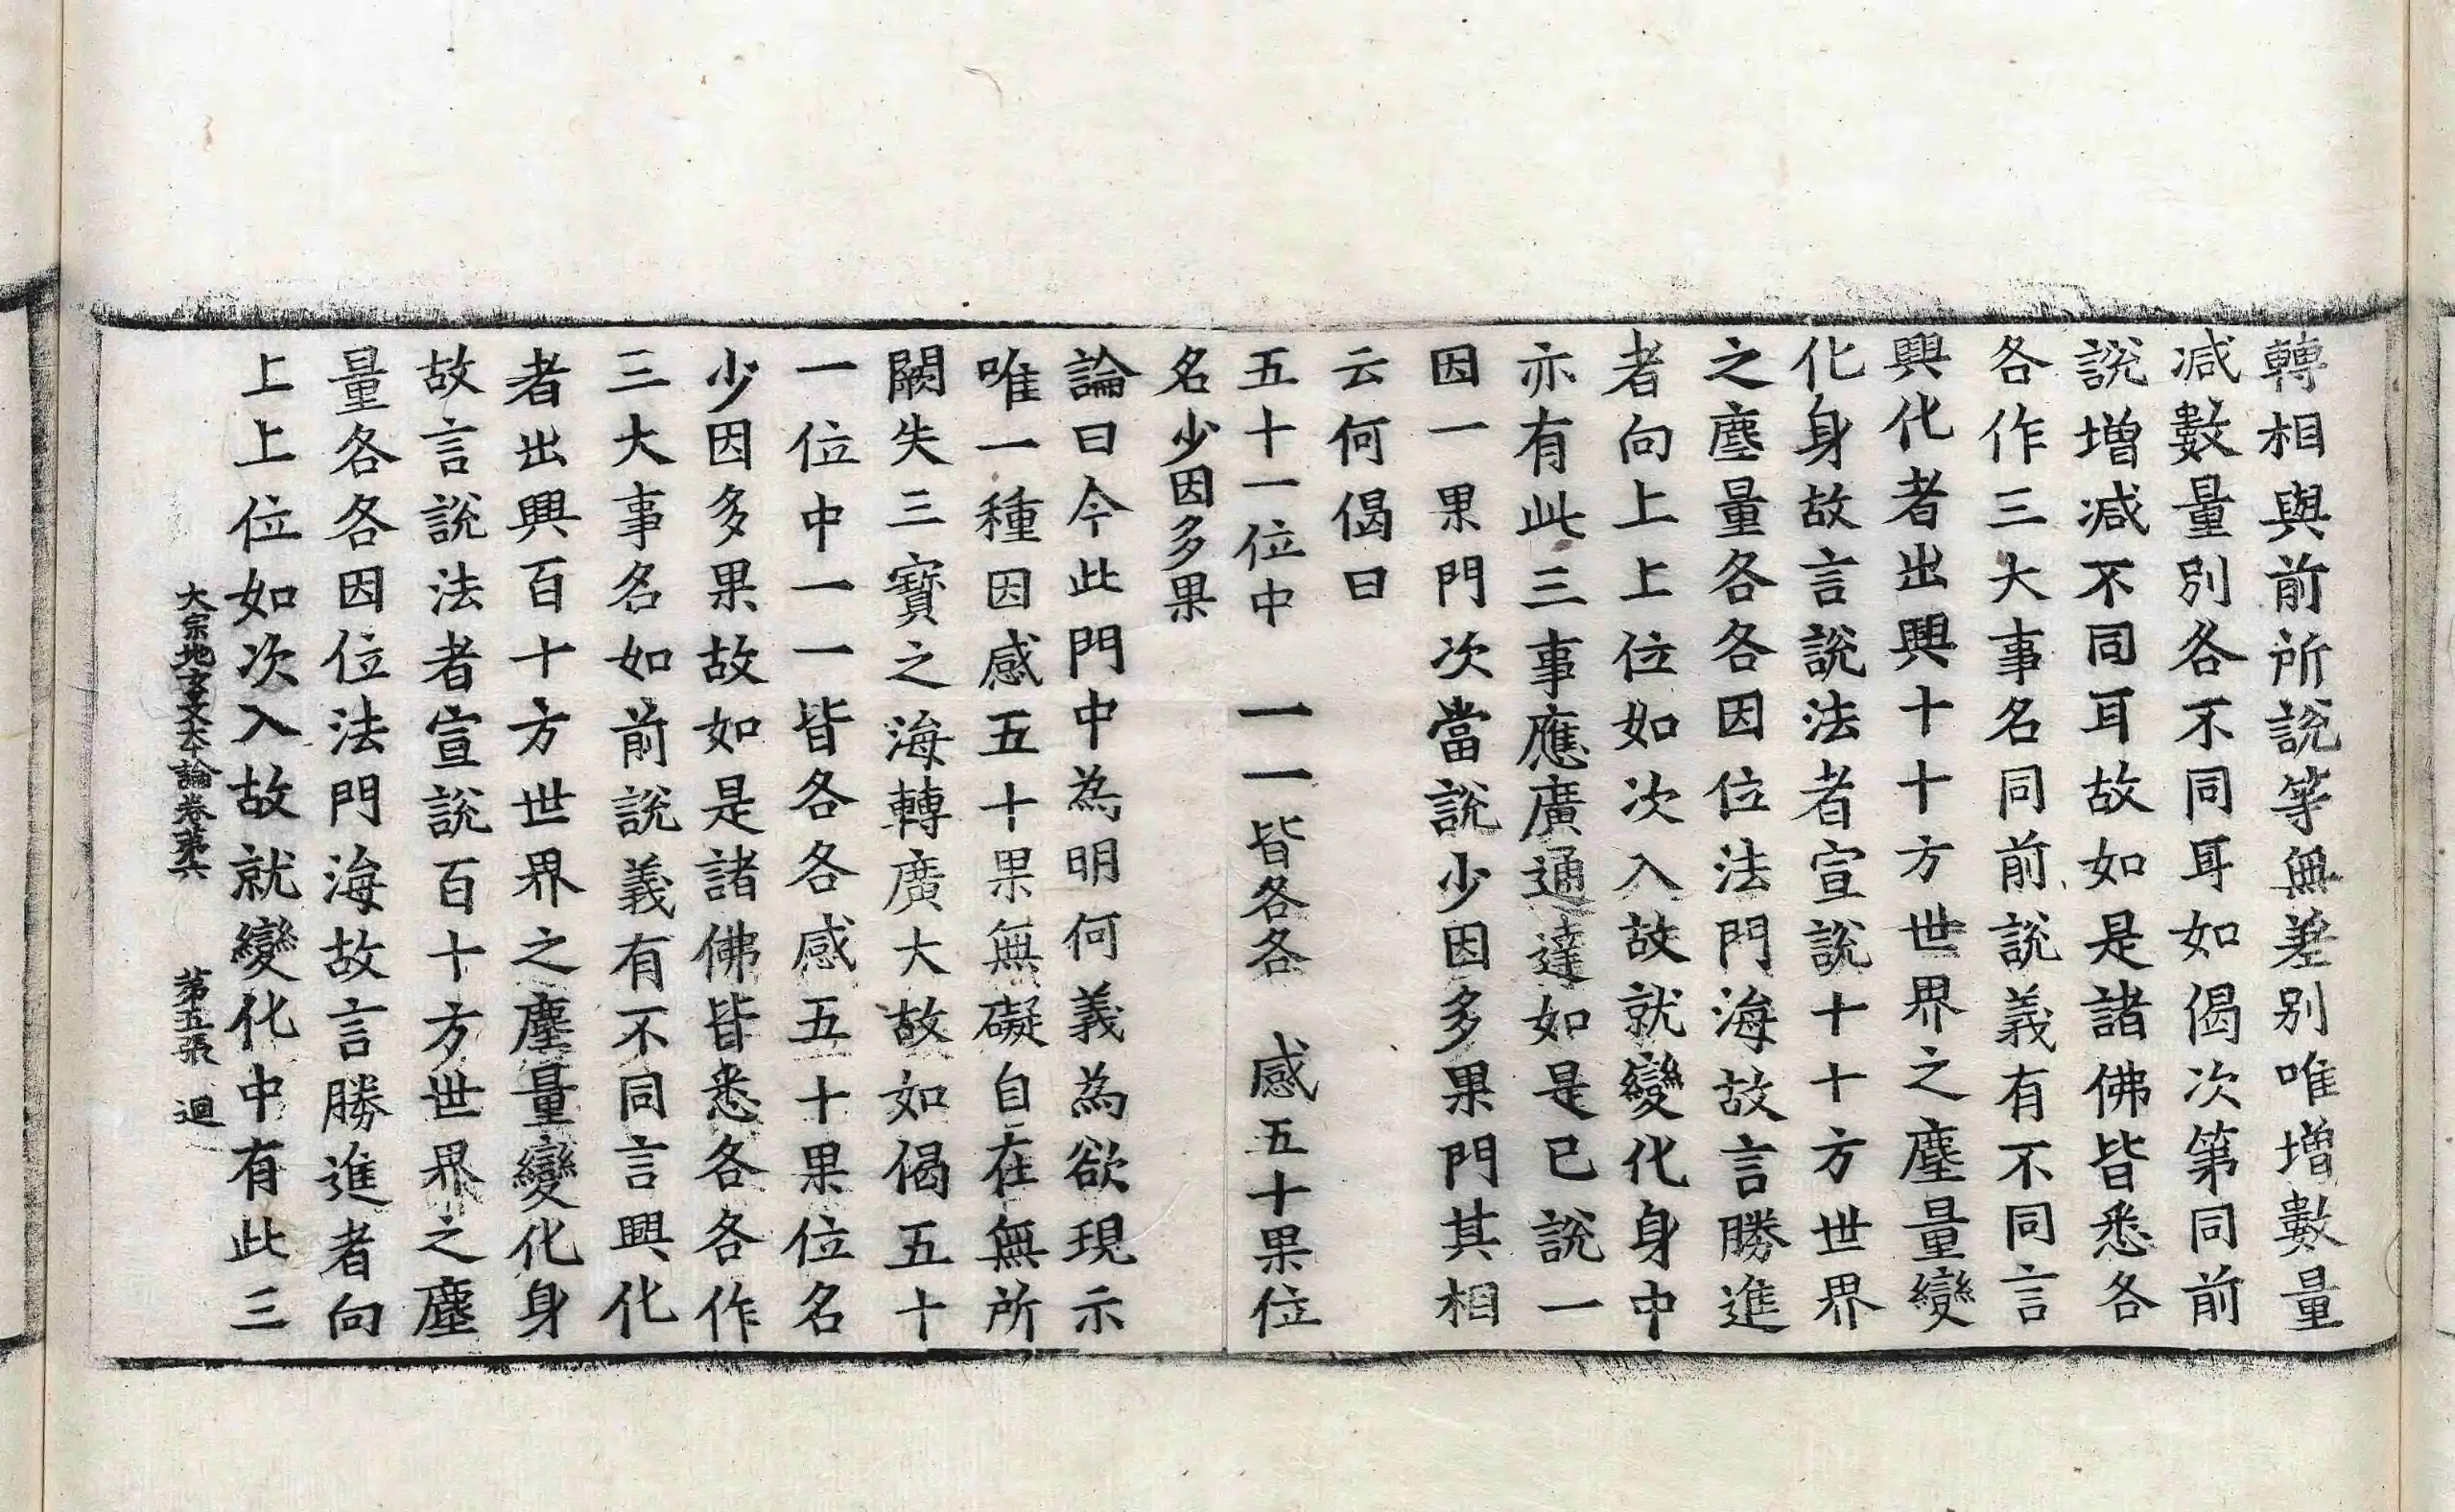 轉相與前所說等無差別唯增數量
減數量別各不同耳如偈次第同前
說增減不同耳故如是諸佛皆悉各
各作三大事名同前說義有不同言
興化者出興十十方世界之塵量變
化身故言說法者宣說十十方世界
之塵量各各因位法門海故言勝進
者向上上位如次入故就變化身中
亦有此三事應廣通達如是已說一
因一果門次當說少因多果門其相
云何偈曰
五十一位中　一一皆各各　感五十果位
名少因多果
論曰今此門中為明何義為欲現示
唯一種因感五十果無礙自在無所
闕失三寶之海轉廣大故如偈五十
一位中一一皆各各感五十果位名
少因多果故如是諸佛皆悉各各作
三大事名如前說義有不同言興化
者出興百十方世界之塵量變化身
故言說法者宣說百十方世界之塵
量各各因位法門海故言勝進者向
上上位如次入故就變化中有此三
大宗地玄文大本論卷第六　第五張　迴